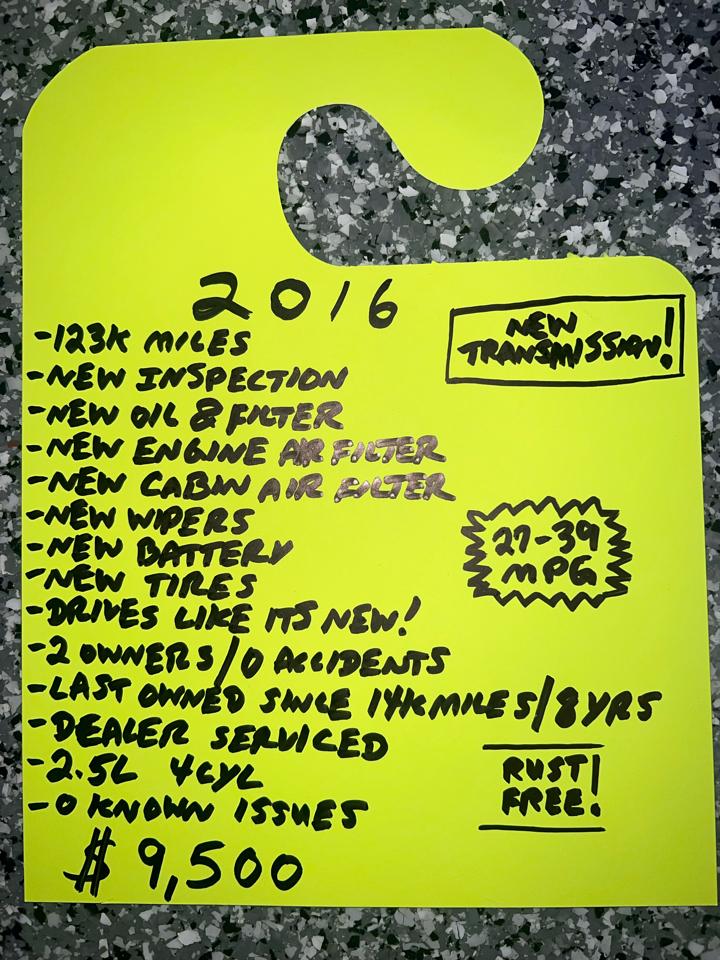 2016
NEW
TRANSMISSION!
-123K MILES
-NEW INSPECTION
-NEW OIL & FILTER
-NEW ENGINE AIR FILTER
-NEW CABIN AIR FILTER
-NEW WIPERS
-NEW BATTERY
-NEW TIRES
27-39
MPG
-DRIVES LIKE ITS NEW!
-2 OWNERS/0 ACCIDENTS
-LAST OWNED SINCE 14K MILES/8YRS
-DEALER SERVICED
-2.5L 4CYL
-0 KNOWN ISSUES
RUST
FREE!
$9,500